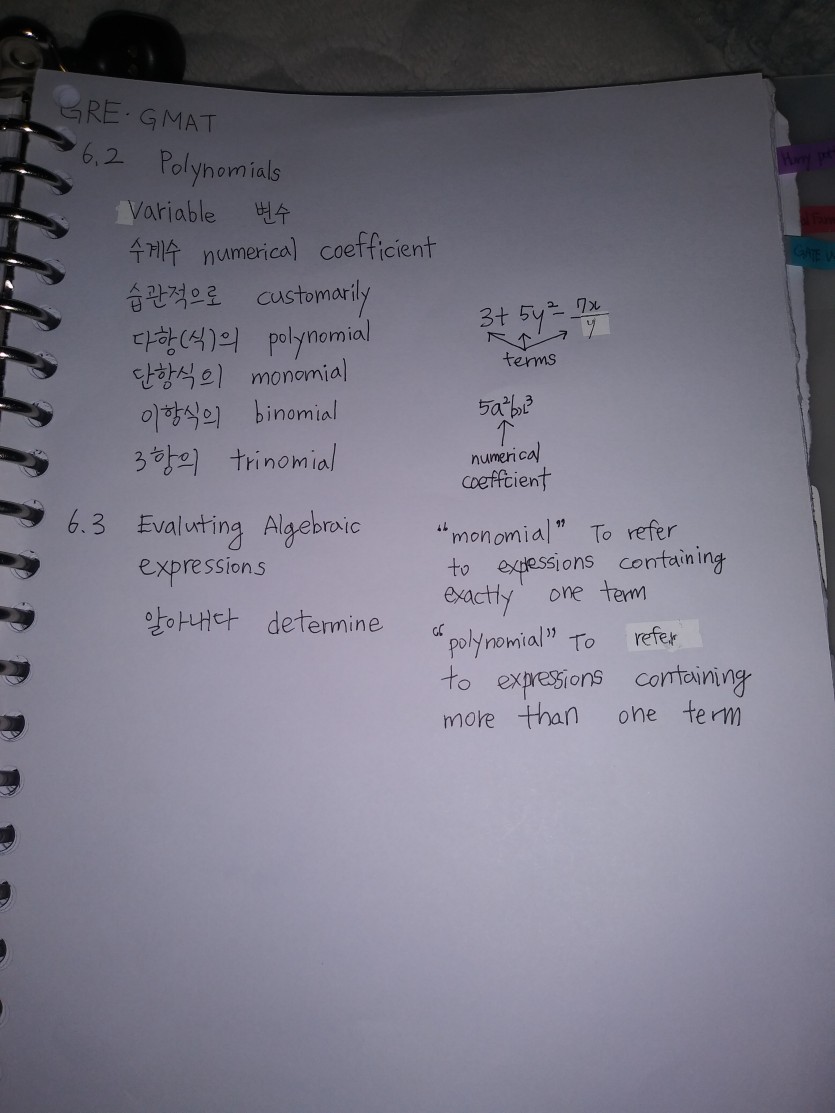 GRE·GMAT
6.2 Polynomials
Variable 변수
수계수 numerical coefficient
습관적으로 customarily
다항(식)의 polynomial
단항식의 monomial
이항식의 binomial
3항의 trinomial
3+ 5y² - 7x/y
terms
numerical
coeffcient
6.3 Evaluting Algebraic
expressions
알아내다 determine
"monomial" To refer
to expessions containing
exactly one term
"polynomial" To refer
to expressions containing
more than one term